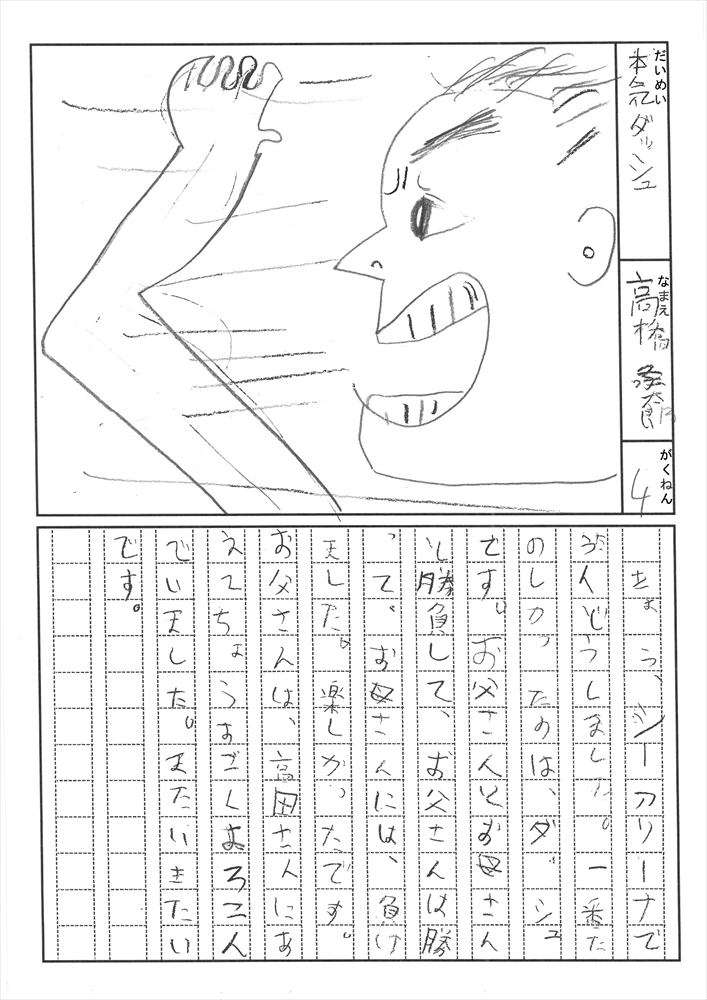 だいめい
本気ダッシュ
なまえ
高橋
がくねん
4
きょう、シーアリーナで
うんどうしました。一番た
のしかったのは、ダッシュ
です。お父さんとお母さん
と勝負して、お父さんは勝
って、お母さんには、負け
ました。楽しかったです。
お父さんは、高田さんにあ
えてちょうすごくよろこん
でいました。またいきたい
です。